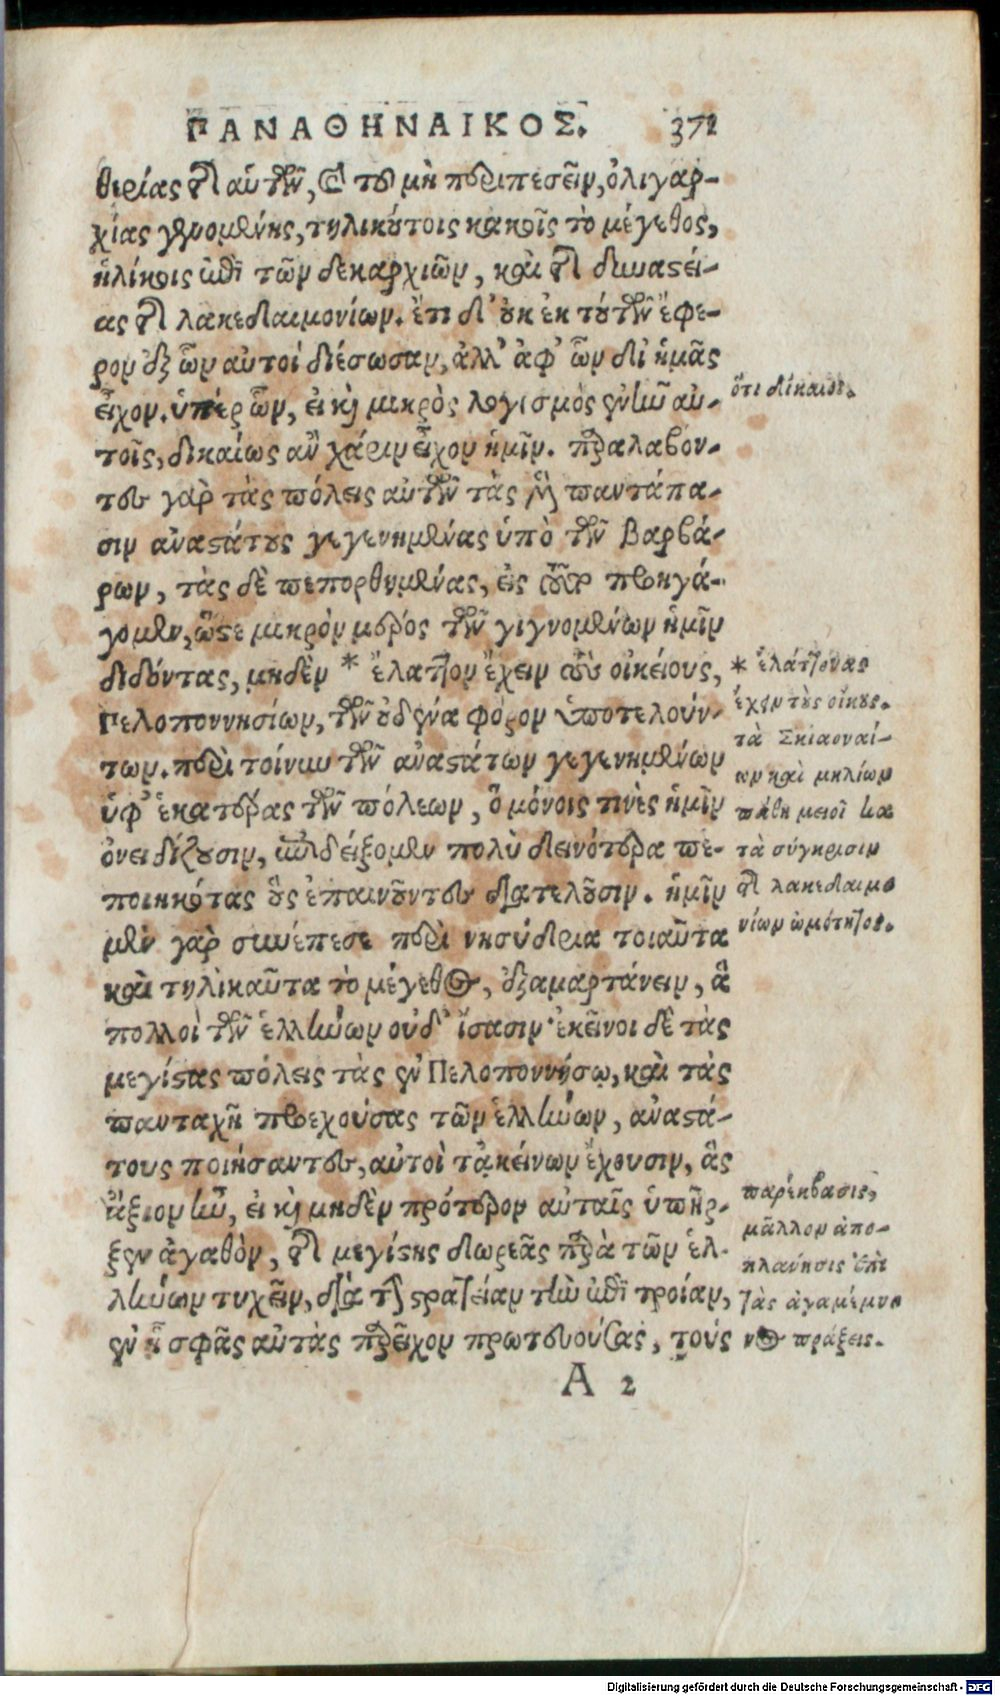 ΠΑΝΑΘΗΝΑΙΚΟΣ. 371
θερίας τῆς αὑτῶν, καὶ τοῦ μὴ περιπεσεῖν, ὀλιγαρ-
χίας γενομένης, τηλικούτοις κακοῖς τὸ μέγεθος,
ἡλίκοις ἐπὶ τῶν δεκαρχιῶν, καὶ τῆς δυναστεί-
ας τῆς λακεδαιμονίων. ἔτι δ' οὐκ ἐκ τούτων ἔφε-
ρον ἐξ ὧν αὐτοὶ διέσωσαν, ἀλλ' ἀφ' ὧν δι' ἡμᾶς
εἶχον. ὑπὲρ ὧν, εἰ καὶ μικρὸς λογισμὸς ἐνῆν αὐ-
τοῖς, δικαίως ἂν χάριν εἶχον ἡμῖν. παραλαβόν-
τες γὰρ τὰς πόλεις αὐτῶν τὰς μὲν παντάπα-
σιν ἀναστάτους γεγενημένας ὑπὸ τῶν Βαρβά-
ρων, τὰς δὲ πεπορθημένας, εἰς τοῦτο προηγά-
γομεν, ὥστε μικρὸν μέρος τῶν γιγνομένων ἡμῖν
διδόντας, μηδὲν * ἔλαττον ἔχειν τοὺς οἰκείους,
Πελοποννησίων, τῶν οὐδένα φόρον ὑποτελούν-
των. περὶ τοίνυν τῶν ἀναστάτων γεγενημένων
ὑφ' ἑκατέρας τῶν πόλεων, ὃ μόνοις τινὲς ἡμῖν
ὀνειδίζουσιν, ἐπιδείξομεν πολὺ δεινότερα πε-
ποιηκότας οὓς ἐπαινοῦντες διατελοῦσιν. ἡμῖν
μὲν γὰρ συνέπεσε περὶ νησύδρια τοιαῦτα
καὶ τηλικαῦτα τὸ μέγεθος, ἐξαμαρτάνειν, ἃ
πολλοὶ τῶν ἑλλήνων οὐδ' ἴσασιν· ἐκεῖνοι δὲ τὰς
μεγίστας πόλεις τὰς ἐν Πελοποννήσῳ, καὶ τὰς
πανταχῇ προεχούσας τῶν ἑλλήνων, ἀναστά-
τους ποιήσαντες, αὐτοὶ τἀκείνων ἔχουσιν, ἃς
ἄξιον ἦν, εἰ καὶ μηδὲν πρότερον αὐταῖς ὑπῆρ-
ξεν ἀγαθὸν, τῆς μεγίστης δωρεᾶς παρὰ τῶν ἑλ-
λήνων τυχεῖν, διὰ τὴν στρατείαν τὴν ἐπὶ τροίαν,
ἐν ᾗ σφᾶς αὐτὰς παρεῖχον πρωτευούσας, τοὺς
Α 2
ὅτι δίκαιοι.
* ἐλάττονας
ἔχειν τοὺς οἴκους.
τὰ Σκιωναί-
ων καὶ μηλίων
πάθη μειοῖ κα
τὰ σύγκρισιν
τῆς λακεδαιμο
νίων ὠμότητος.
παρέκβασις,
μᾶλλον ἀπο-
πλάνησις ἐπὶ
τὰς ἀγαμέμνο
νος πράξεις.
Digitalisierung gefördert durch die Deutsche Forschungsgemeinschaft - DFG